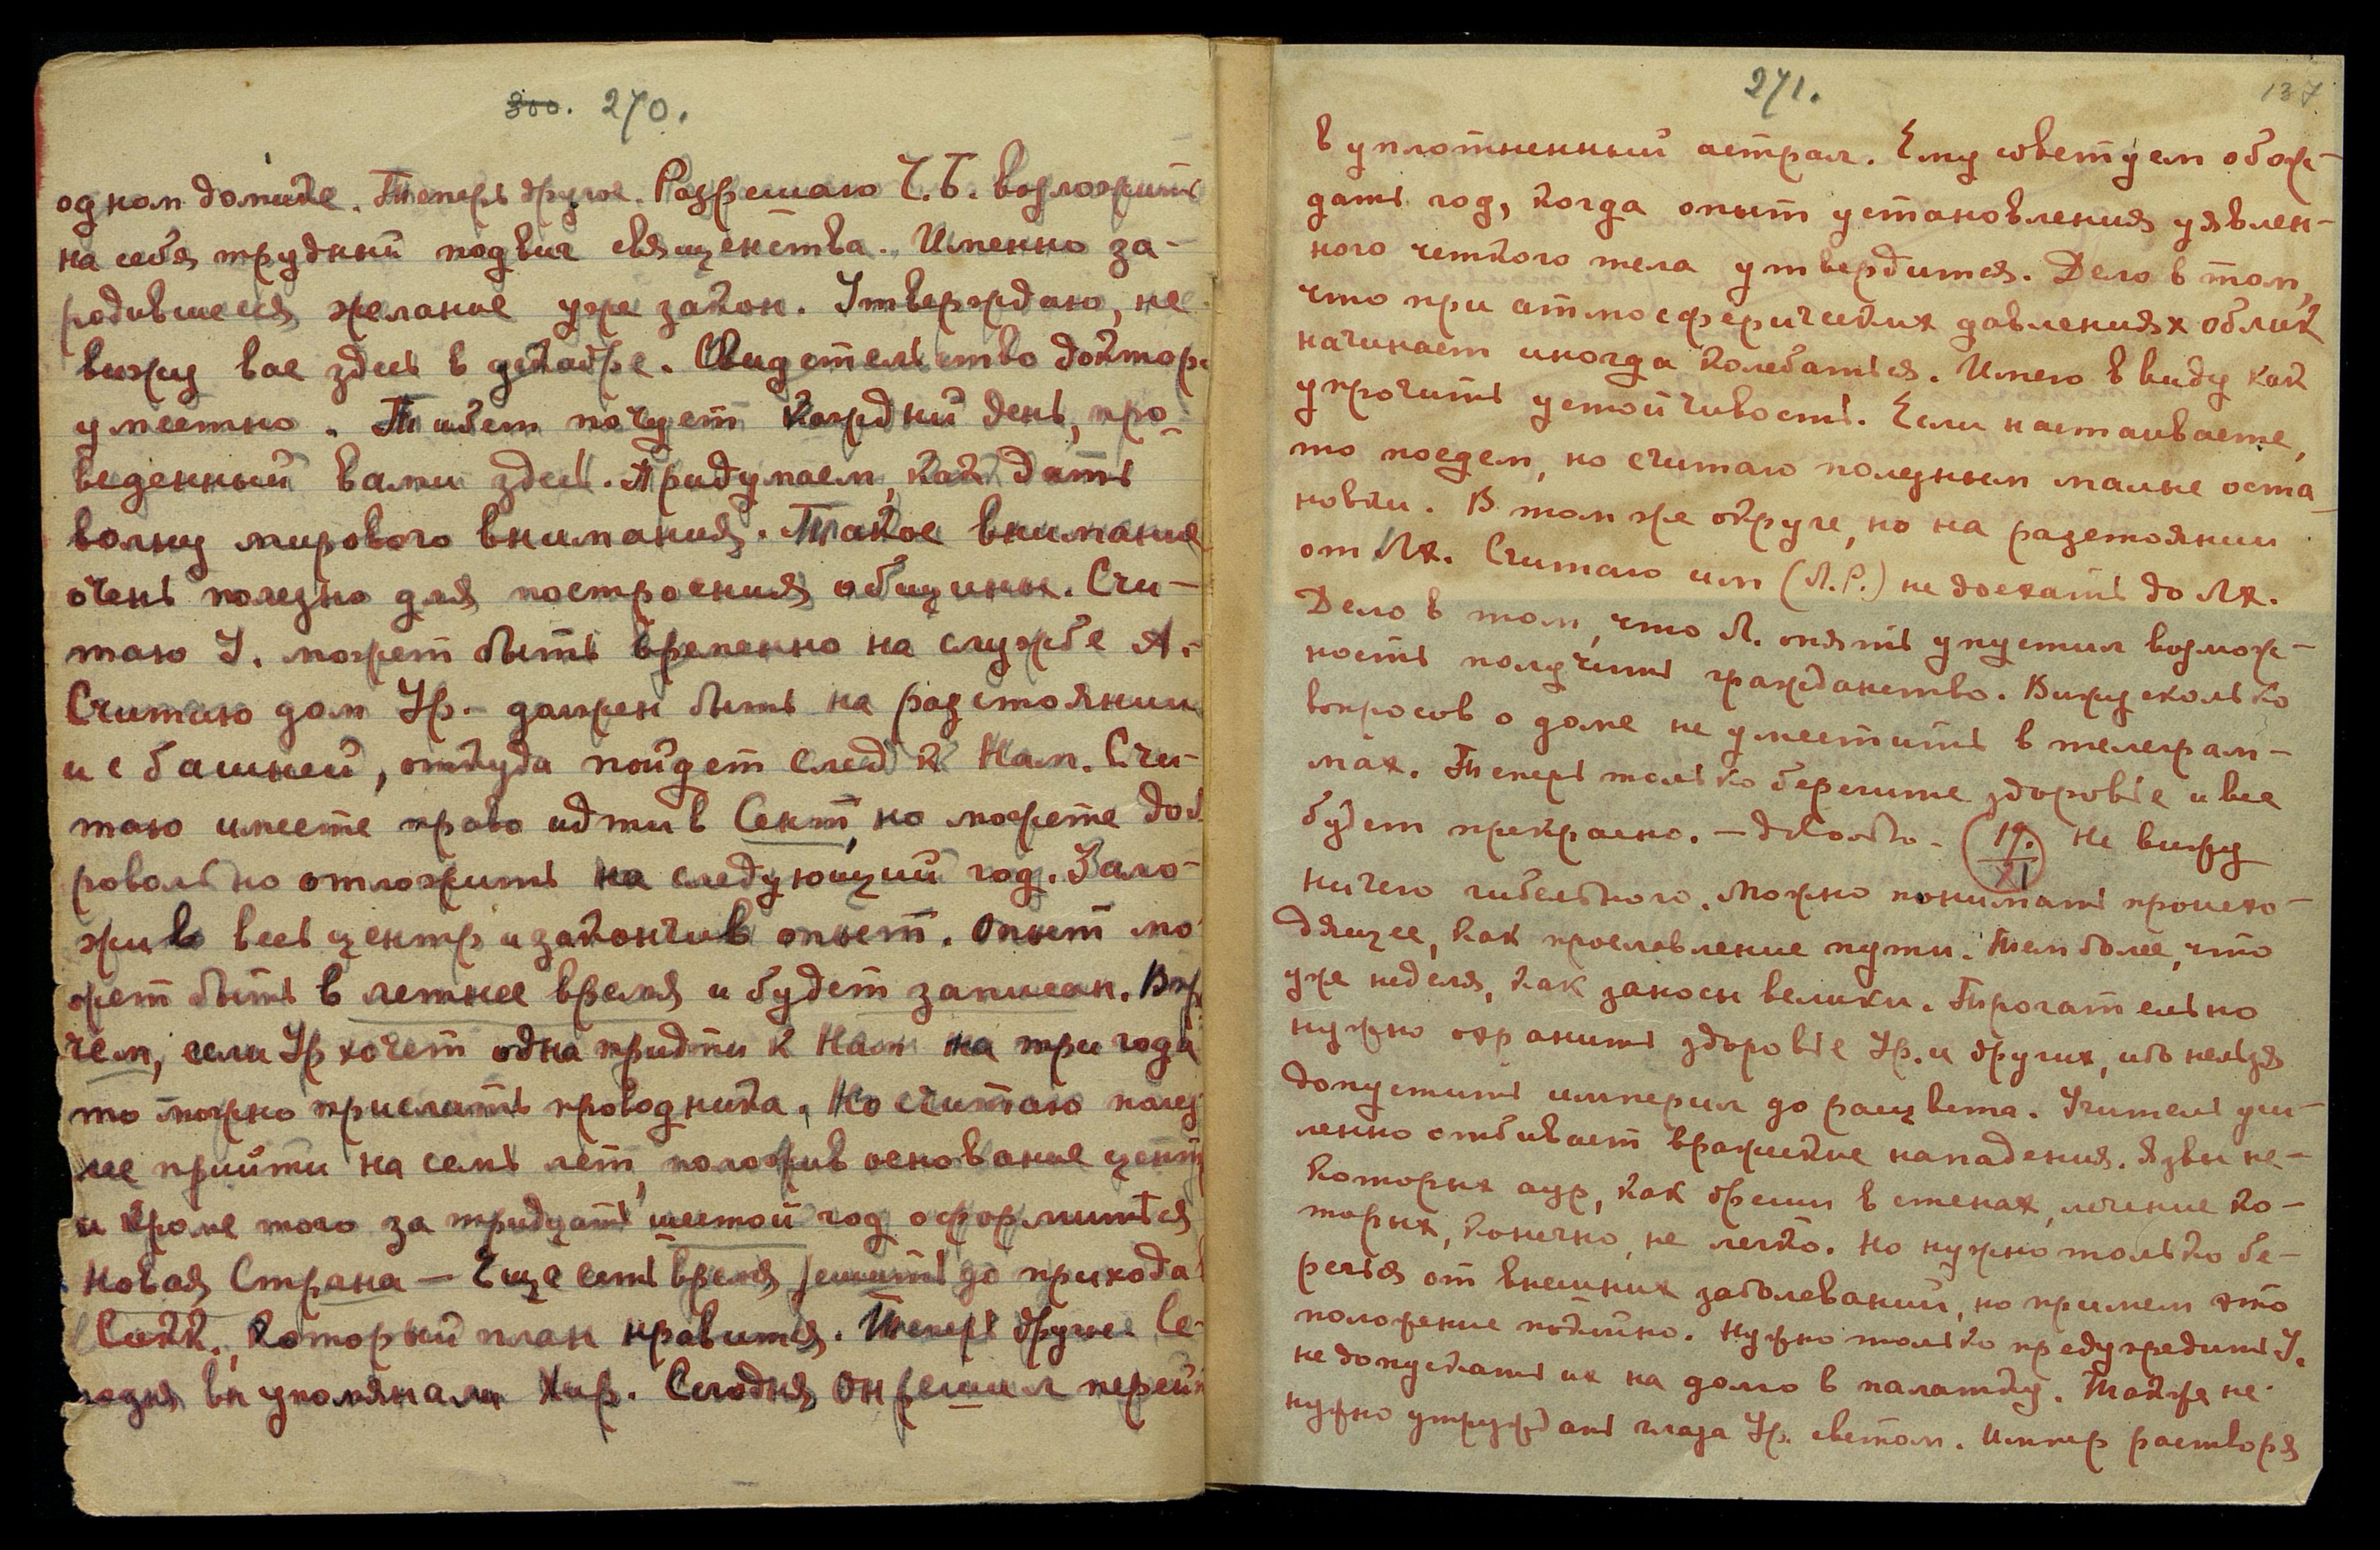 300. 270.
одном домике. Теперь другое. Разрешаю Ч.Б. возложить
на себя трудный подвиг священства. Именно за-
родившееся желание уже закон. Утверждаю, не
вижу вас здесь в декабре. Свидетельство доктор
уместно. Тибет почует каждый день, про-
веденный вами здесь. Придумаем, как дать
волну мирового внимания. Такое внимание
очень полезно для построения общины. Счи-
таю У. может быть временно на службе А.
Считаю дом Ур. должен быть на разстоянии
и с башней, откуда пойдет след к Нам. Счи-
таю имеете право идти в Сент, но можете доб
ровольно отложить на следующий год. Зало-
жив весь центр и закончив опыт. Опыт мо
жет быть в летнее время и будет записан. Впр
чем, если Ур хочет одна придти к Нам на три года
то можно прислать проводника. Но считаю полез
нее прийти на семь лет, положив основание цент
и кроме того за тридцать шестой год оформится
Новая Страна — Еще есть время решить до прихода в
Сикк., который план нравится. Теперь другое. Се-
годня вы упомянали Хир. Сегодня Он решил перейт
271.
137
в уплотненный астрал. Ему советуем обож-
дать год, когда опыт установления уявлен-
ного четкого тела утвердится. Дело в том,
что при атмосферических давлениях облик
начинает иногда колебаться. Имею в виду как
упрочить устойчивость. Если настаиваете,
то поедем, но считаю полезным малые оста-
новки. В том же округе, но на разстоянии
от Лх. Считаю им (Л.Р.) не доехать до Лх.
Дело в том, что Л. опять упустил возмож-
ность получить гражданство. Вижу сколько
вопросов о доме не уместить в телеграм-
мах. Теперь только берегите здоровье и все
будет прекрасно. — довольно. 19. XI Не вижу
ничего гибельного. Можно понимать происхо-
дящее, как прославление пути. Тем более, что
уже неделя, как заносы велики. Трогательно
нужно охранить здоровье Ур. и других, ибо нельзя
допустить империл до расцвета. Учитель уси-
ленно отбивает вражеские нападения. Язвы не-
которых аур, как бреши в стенах, лечение ко-
торых, конечно, не легко. Но нужно только бе-
речься от внешних заболеваний, но примем это
положение покойно. Нужно только предупредить У.
не допускать их на долго в палатку. Также не
нужно утруждать глаза Ур. светом. Импер растворя